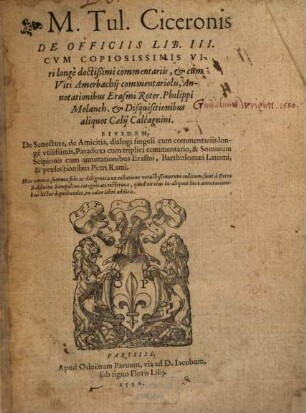 M. Tul. Ciceronis
DE OFFICIIS LIB. III.
CVM COPIOSISSIMIS VI-
ri longè doctissimi commentariis, & cum
Viti Amerbachij commentariolis, An-
notationibus Erasmi Roter. Philippi
Melanch. & Disquisitionibus
aliquot Cælij Calcagnini.
EIVSDEM,
De Senectute, de Amicitia, dialogi singuli cum commentariis lon-
gè vtilissimis, Paradoxa cum triplici commentario, & Somnium
Scipionis cum annotationibus Erasmi, Bartholomæi Latomi,
& prælectionibus Petri Rami.
Hæc omnia summa fide ac diligentia ex collatione
integritati restituta,
O P
PARISIIS,
Apud Odoënum Paruum, via ad D. Iacobum,
sub signo Floris Lilij.